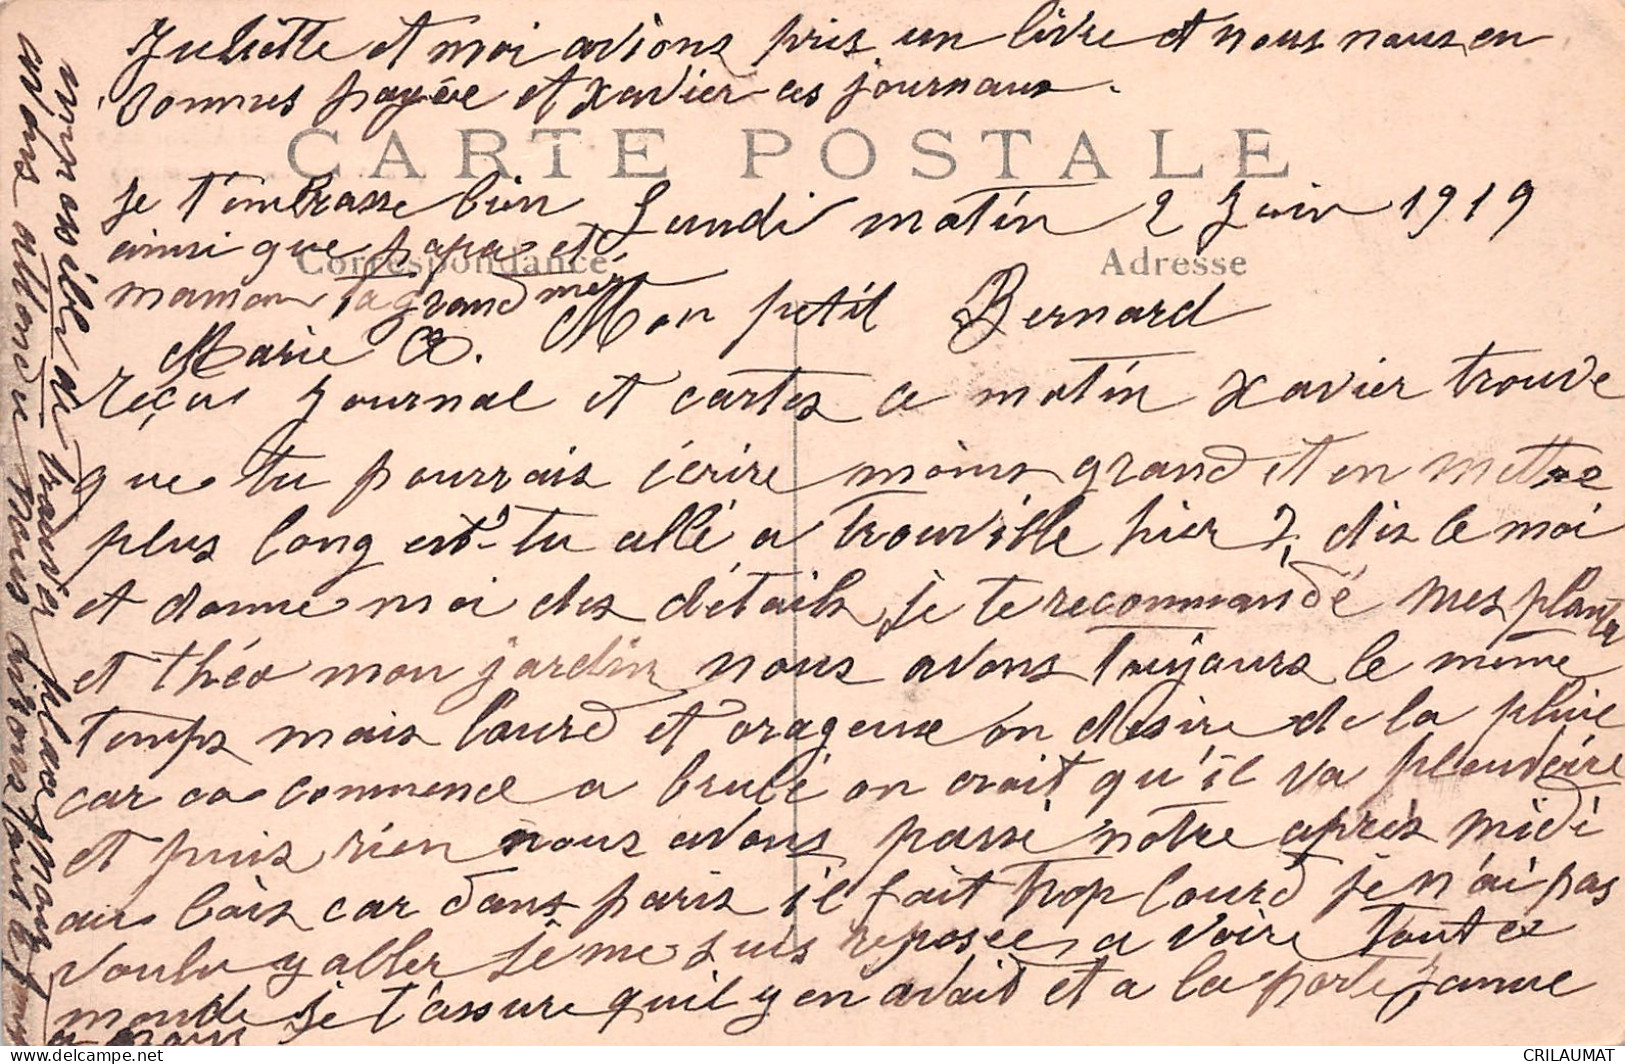 Lundi matin 2 Juin 1919
Mon petit Bernard
reçus Journal et cartes ce matin Xavier trouve
que tu pourrais écrire moins grand et en mettre
plus long est-tu allé a trouville hier ?, dis le moi
et donne moi des détails, je te recommandé mes plantes
et théo mon jardin nous avons toujours le même
temps mais lourd et orageux on desire de la pluie
car ca commence a brulé on croit qu'il va pleuvoire
et puis rien nous avons passé notre après midi
au bois car dans paris il fait trop lourd je n'ai pas
voulu y aller je me suis reposée, a voire toute ce
monde je t'assure qu'il y en avait et a la porte Jaune
impossible de trouver place pour
avons attendu nous dirons tous le temps
a nous
Juliette et moi avions pris un livre et nous nous en
sommes payée et Xavier ces journaux.
CARTE POSTALE
je t'embrasse bien
ainsi que papa et
maman Ta grand mère
Marie
Correspondance
Adresse
CRILAUMAT